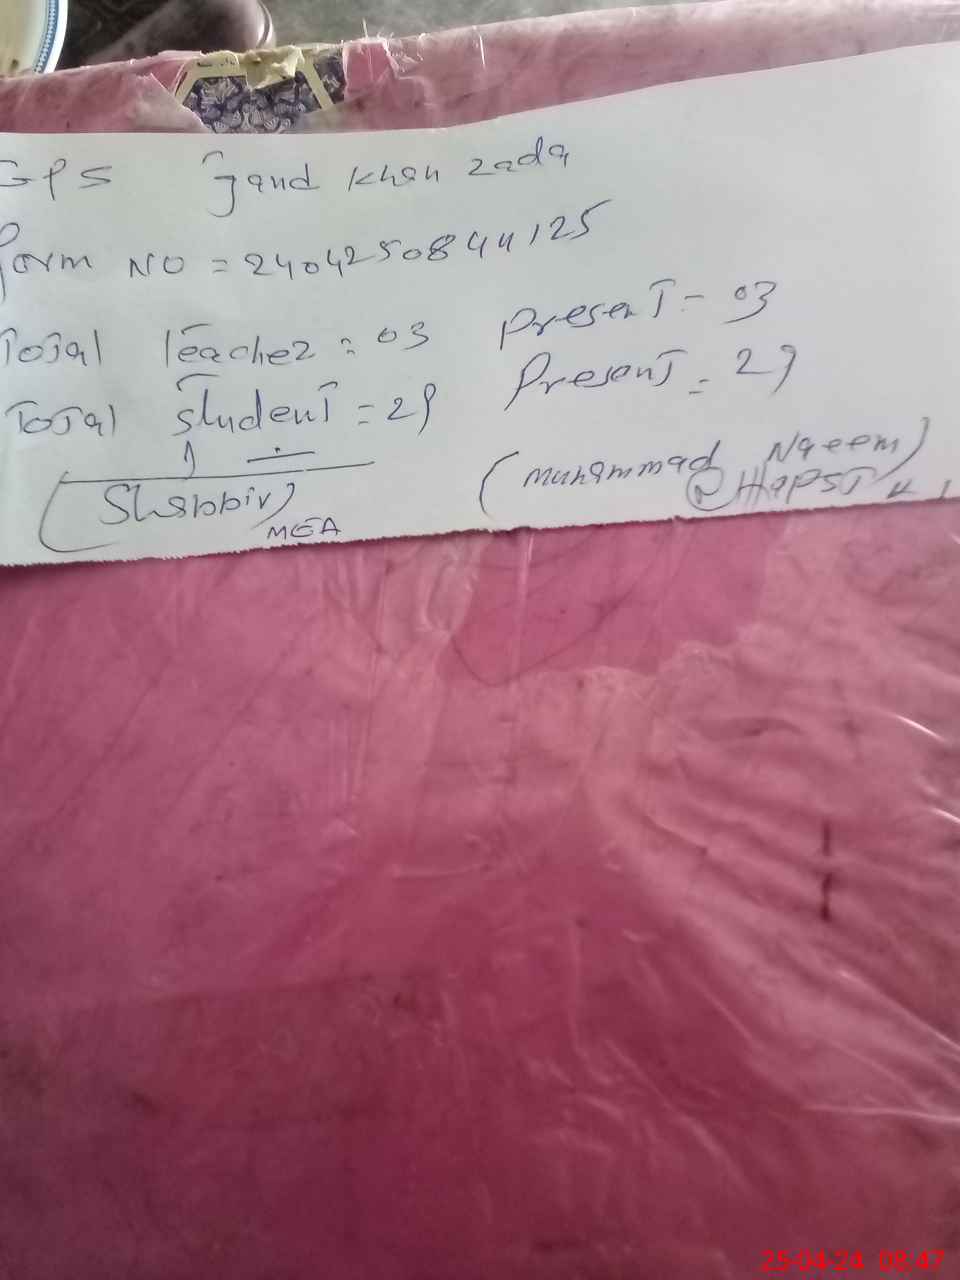 GPS Jand Khan zada
form NO = 2404250844125
Total Teacher = 03 Present = 03
Total Student = 29 Present = 29
(Shabbir) (Muhammad Naeem)
MEA
25-04-24 08:47